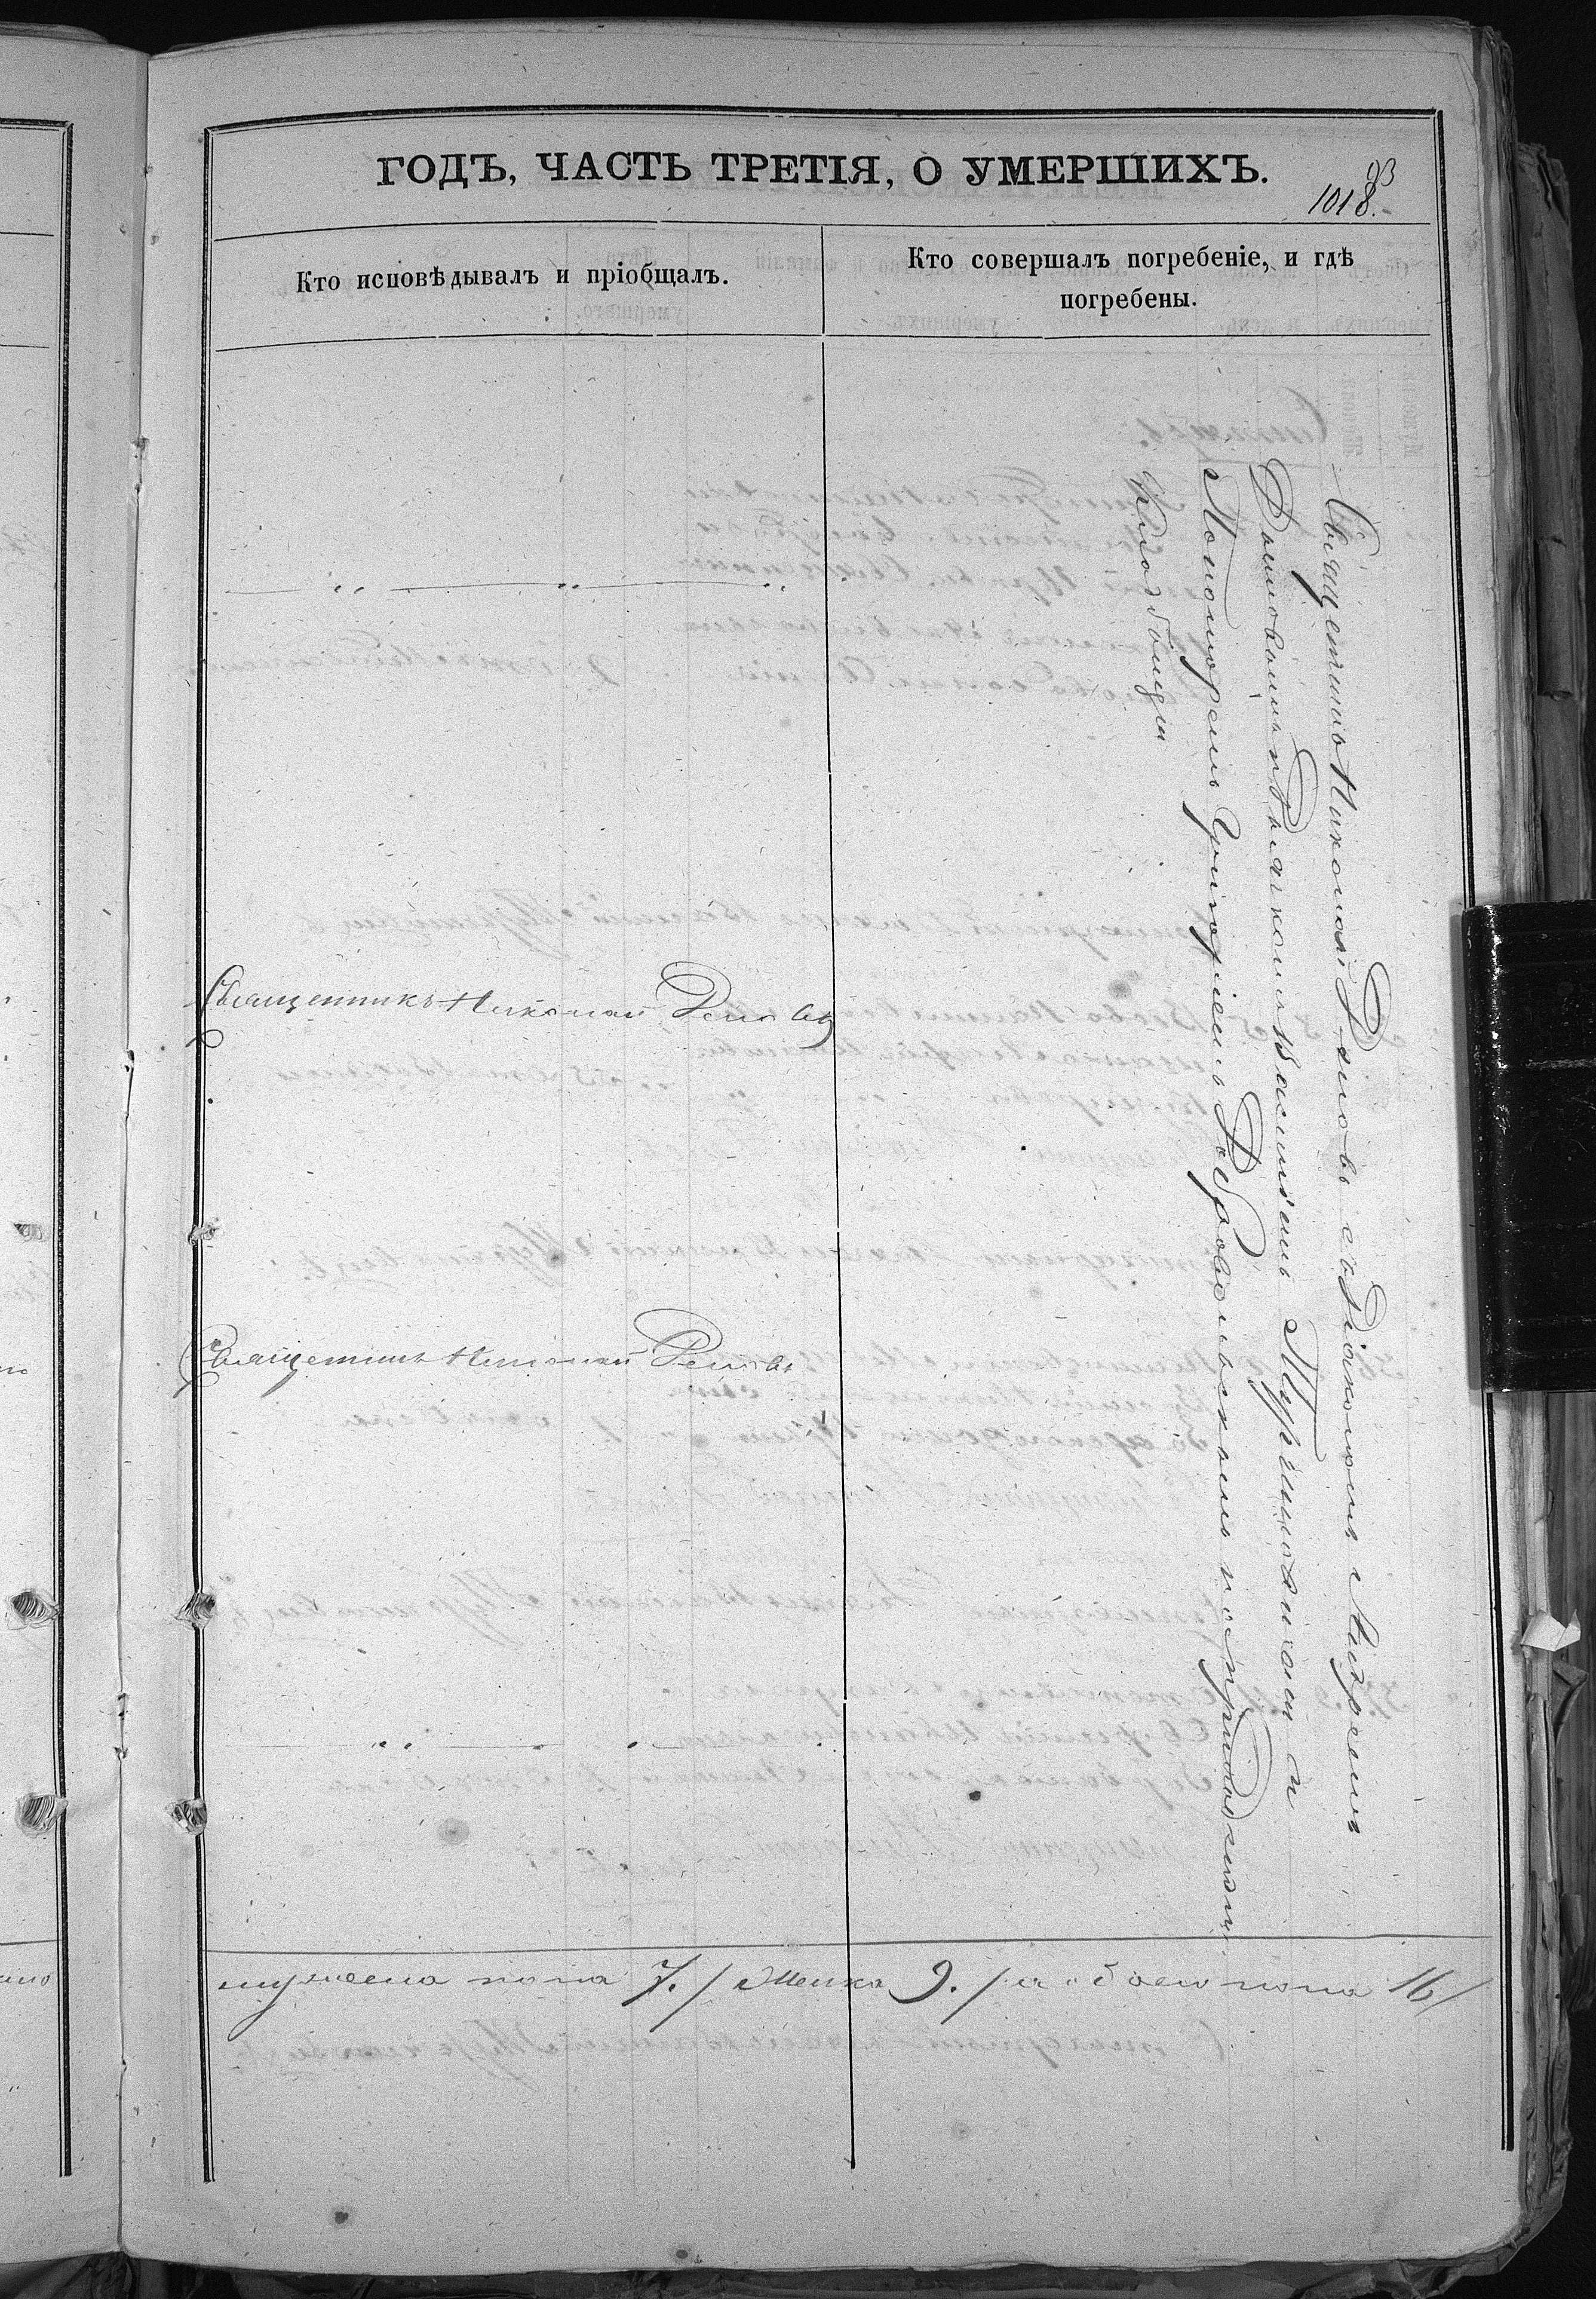 ГОДЪ, ЧАСТЬ ТРЕТІЯ, О УМЕРШИХЪ.
93
1018.
Кто исповѣдывалъ и пріобщалъ.
Кто совершалъ погребеніе, и гдѣ
погребены.
„ — „ — „
Священникъ Николай Реловъ
Священникъ Николай Реловъ
„ — „ — „
Священникъ Николай Реловъ съ Діакономъ Андреемъ
и
Пономоремъ Григоріемъ Добровольскимъ на приходскомъ
Кладбищѣ
мужеска пола 7. / женска 9. / а обоего пола 16 /